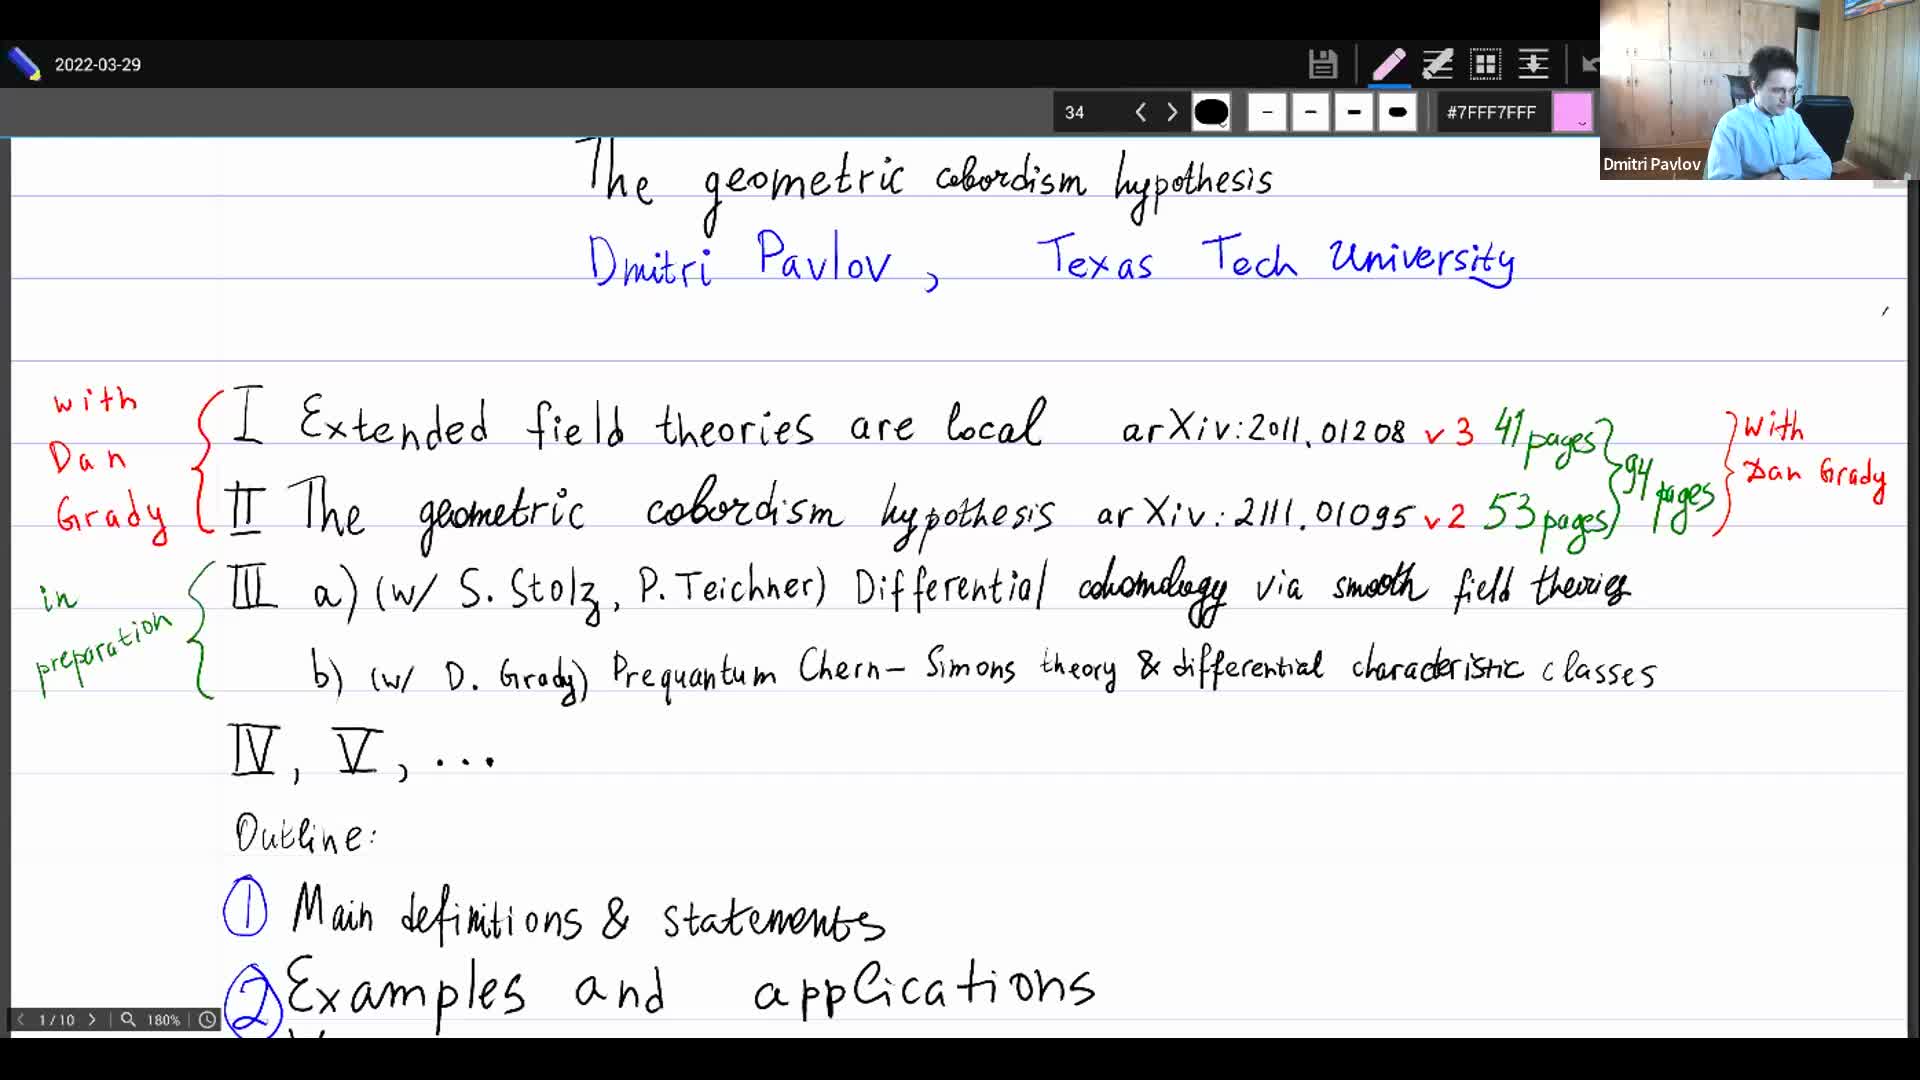 2022-03-29
34
#7FFF7FFF
Dmitri Pavlov
The geometric cobordism hypothesis
Dmitri Pavlov, Texas Tech University
with Dan Grady
I Extended field theories are local arXiv:2011.01208 v3 41 pages
II The geometric cobordism hypothesis arXiv:2111.01095 v2 53 pages
94 pages
with Dan Grady
in preparation
III a) (w/ S. Stolz, P. Teichner) Differential cohomology via smooth field theories
b) (w/ D. Grady) Prequantum Chern-Simons theory & differential characteristic classes
IV, V, ...
Outline:
① Main definitions & statements
② Examples and applications
1/10
180%